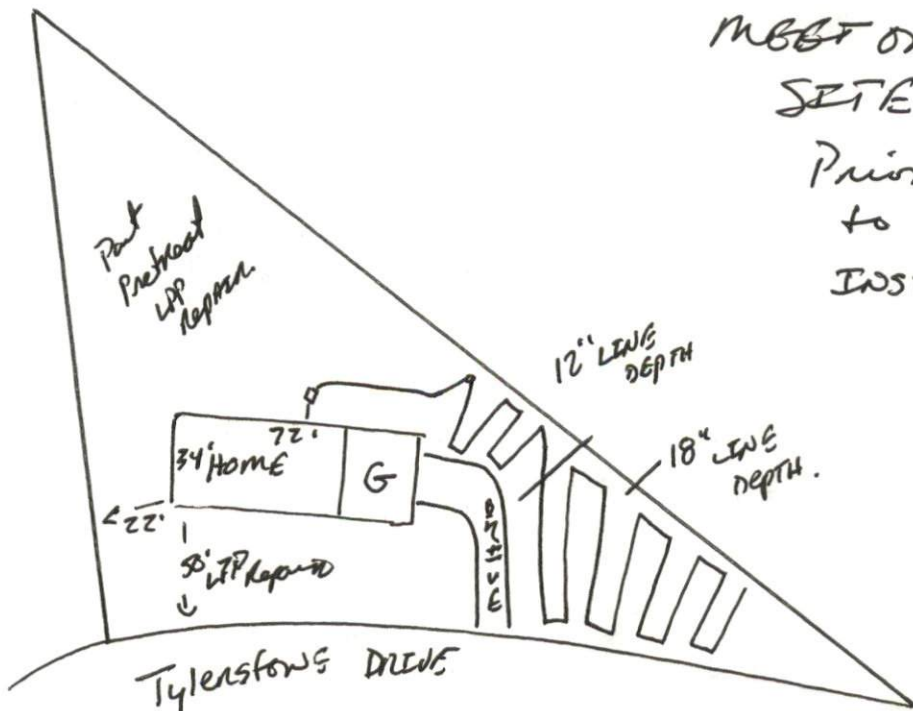 MEET ON
SITE
Prior
to
INS
Pretreat
LPP
Repair
12" LINE
DEPTH
18" LINE
DEPTH.
72'
34' HOME
G
22'
DRIVE
50' LPP
Tylerstone DRIVE